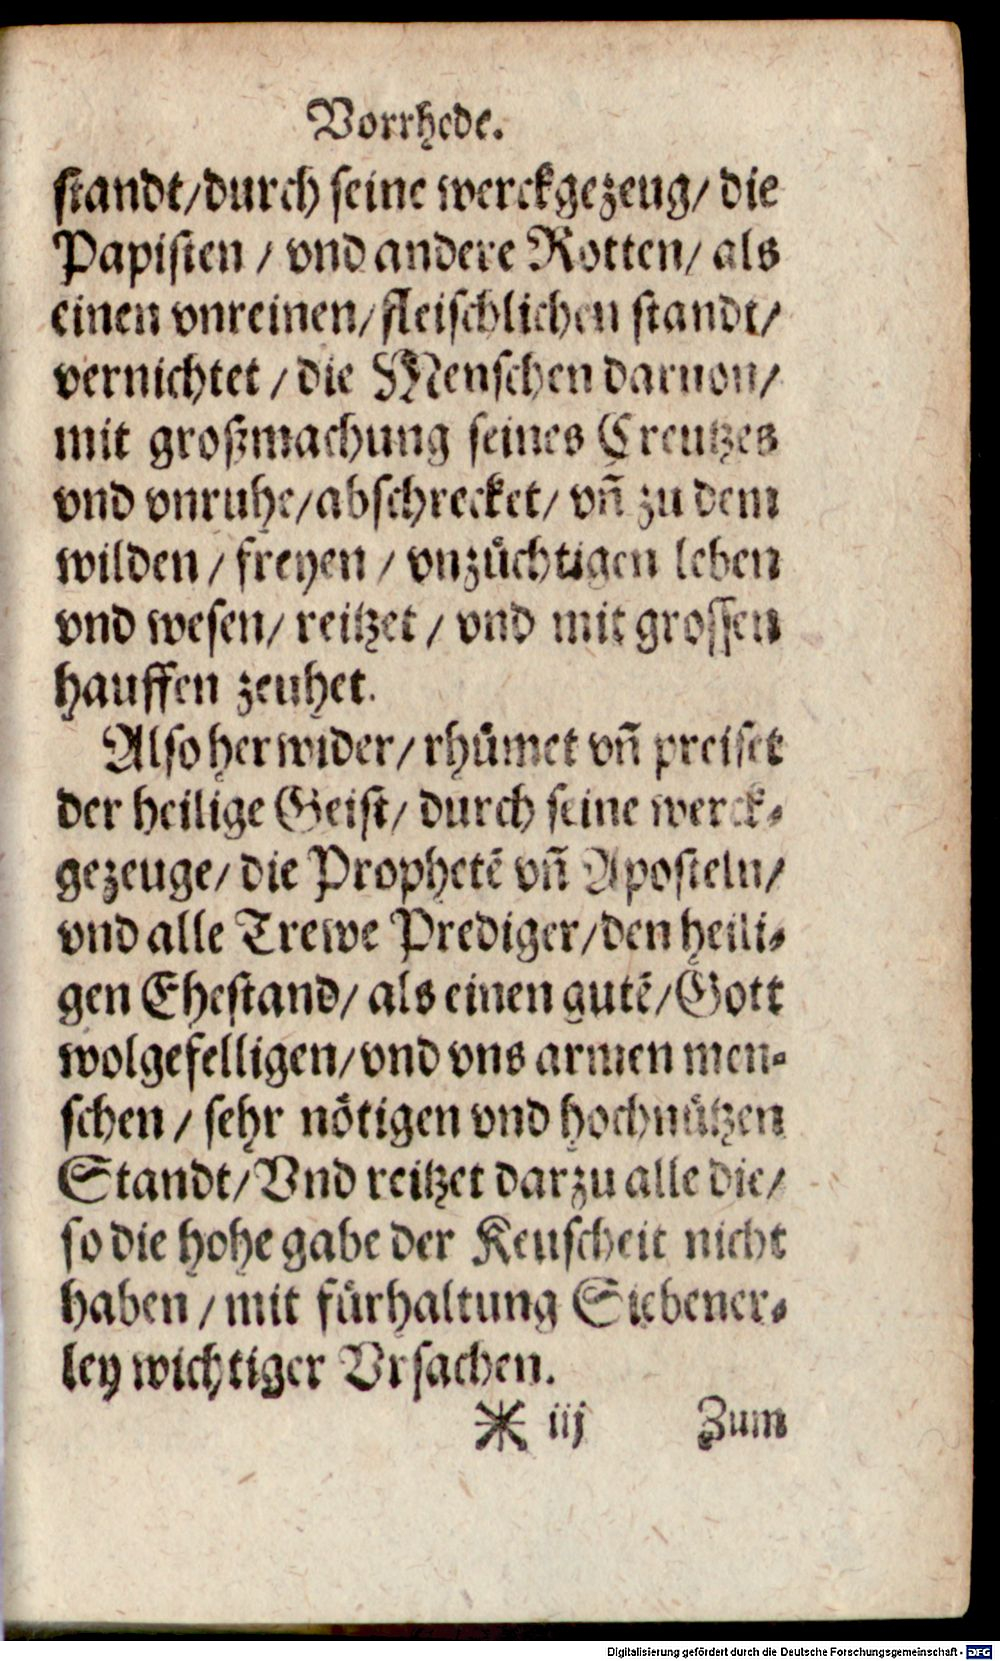 Vorrhede.
standt/durch seine werckgezeug/ die
Papisten / vnd andere Rotten/ als
einen vnreinen/fleischlichen standt/
vernichtet / die Menschen daruon/
mit großmachung seines Creutzes
vnd vnruhe/abschrecket/ vñ zu dem
wilden / freyen / vnzuͤchtigen leben
vnd wesen/ reitzet / vnd mit grossen
hauffen zeuhet.
Also herwider/ rhuͤmet vñ preiset
der heilige Geist/ durch seine werck-
gezeuge/ die Prophetẽ vñ Aposteln/
vnd alle Trewe Prediger/den heili-
gen Ehestand/ als einen gutẽ/Gott
wolgefelligen/vnd vns armen men-
schen / sehr noͤtigen vnd hochnuͤtzen
Standt/Vnd reitzet darzu alle die/
so die hohe gabe der Keuscheit nicht
haben / mit fuͤrhaltung Siebener-
ley wichtiger Vrsachen.
* iij Zum
Digitalisierung gefördert durch die Deutsche Forschungsgemeinschaft - DFG